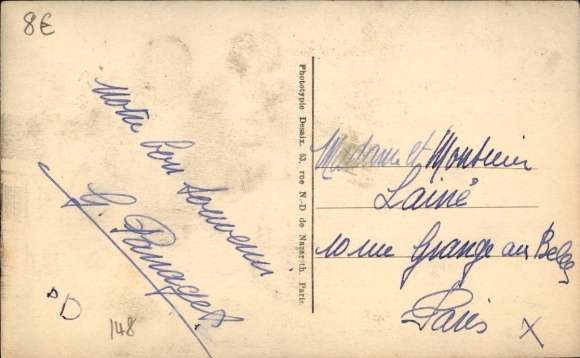 8€
notre bon souvenir
G. Panaget
Phototypie Desaix. 53, rue N.-D de Nazareth. Paris.
Madame et Monsieur
Lainé
10 rue Grange aux Belles
Paris
D
148
X